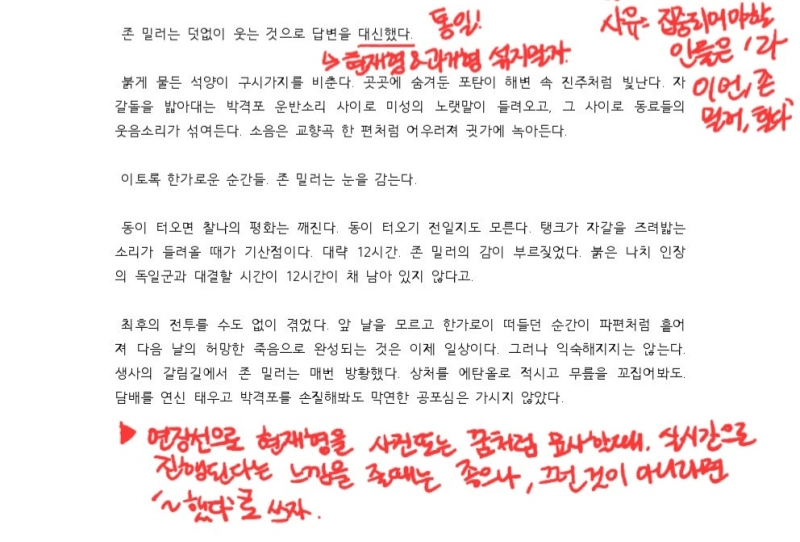 존 밀러는 덧없이 웃는 것으로 답변을 대신했다.
통일!
↳ 현재형 & 과거형 섞지말자.
사유: 집중되어야할
인물은 '라
이언, 존
밀러, 된다'
붉게 물든 석양이 구시가지를 비춘다. 곳곳에 숨겨둔 포탄이 해변 속 진주처럼 빛난다. 자
갈들을 밟아대는 박격포 운반소리 사이로 미성의 노랫말이 들려오고, 그 사이로 동료들의
웃음소리가 섞여든다. 소음은 교향곡 한 편처럼 어우러져 귓가에 녹아든다.
이토록 한가로운 순간들. 존 밀러는 눈을 감는다.
동이 터오면 찰나의 평화는 깨진다. 동이 터오기 전일지도 모른다. 탱크가 자갈을 즈려밟는
소리가 들려올 때가 기산점이다. 대략 12시간. 존 밀러의 감이 부르짖었다. 붉은 나치 인장
의 독일군과 대결할 시간이 12시간이 채 남아 있지 않다고.
최후의 전투를 수도 없이 겪었다. 앞 날을 모르고 한가로이 떠들던 순간이 파편처럼 흩어
져 다음 날의 허망한 죽음으로 완성되는 것은 이제 일상이다. 그러나 익숙해지지는 않는다.
생사의 갈림길에서 존 밀러는 매번 방황했다. 상처를 에탄올로 적시고 무릎을 꼬집어봐도.
담배를 연신 태우고 박격포를 손질해봐도 막연한 공포심은 가시지 않았다.
▶ 연장선으로 현재형을 사건또는 꿈처럼 묘사한지라. 실시간으로
진행된다는 느낌을 줄때는 좋으나, 그런것이 아니라면
'~했다'로 쓰자.